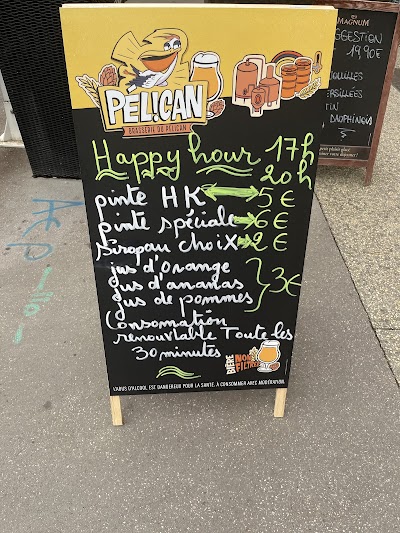 PEL!CAN
BRASSERIE DU PELICAN
Happy hour 17h
20h
pinte HK 5€
pinte spéciale 6€
Sirop au choix 2€
jus d'orange
jus d'ananas 3€
jus de pommes
Consommation
renouvlable Toute les
30 minutes
BIÈRE NON FILTRÉE
L'ABUS D'ALCOOL EST DANGEREUX POUR LA SANTÉ. À CONSOMMER AVEC MODÉRATION.
MAGNUM
GGESTION
19,90€
QUILLES
ERSILLÉES
TIN
DAUPHINOIS